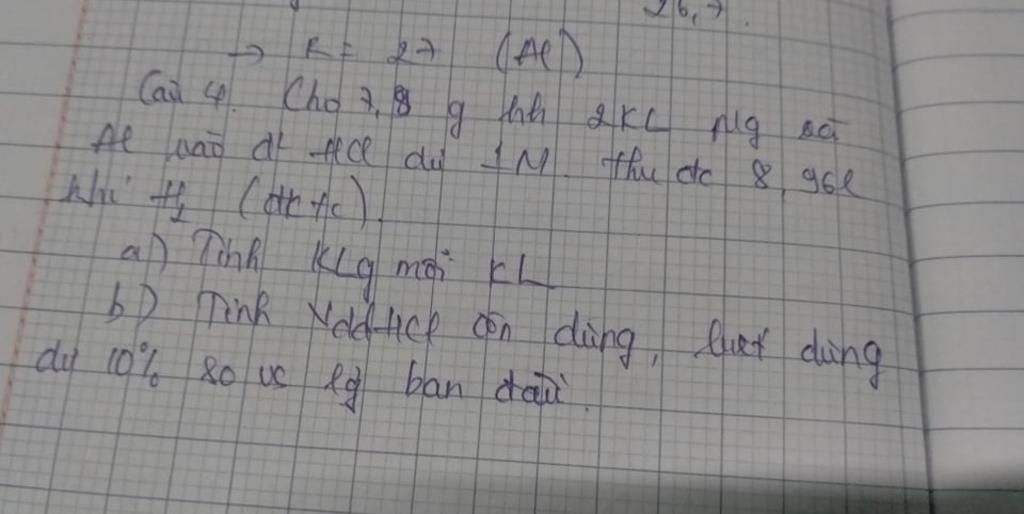 26,7.
→ R = 27 (Al)
Câu 4. Cho 7,8 g hh 2KL Mg và
Al vào d² HCl dư 1M. thu đc 8,96l
khí H₂ (đktc).
a) Tính KLg mỗi KL
b) Tính VddHCl cần dùng, biết dùng
dư 10% so vs lg ban đầu.